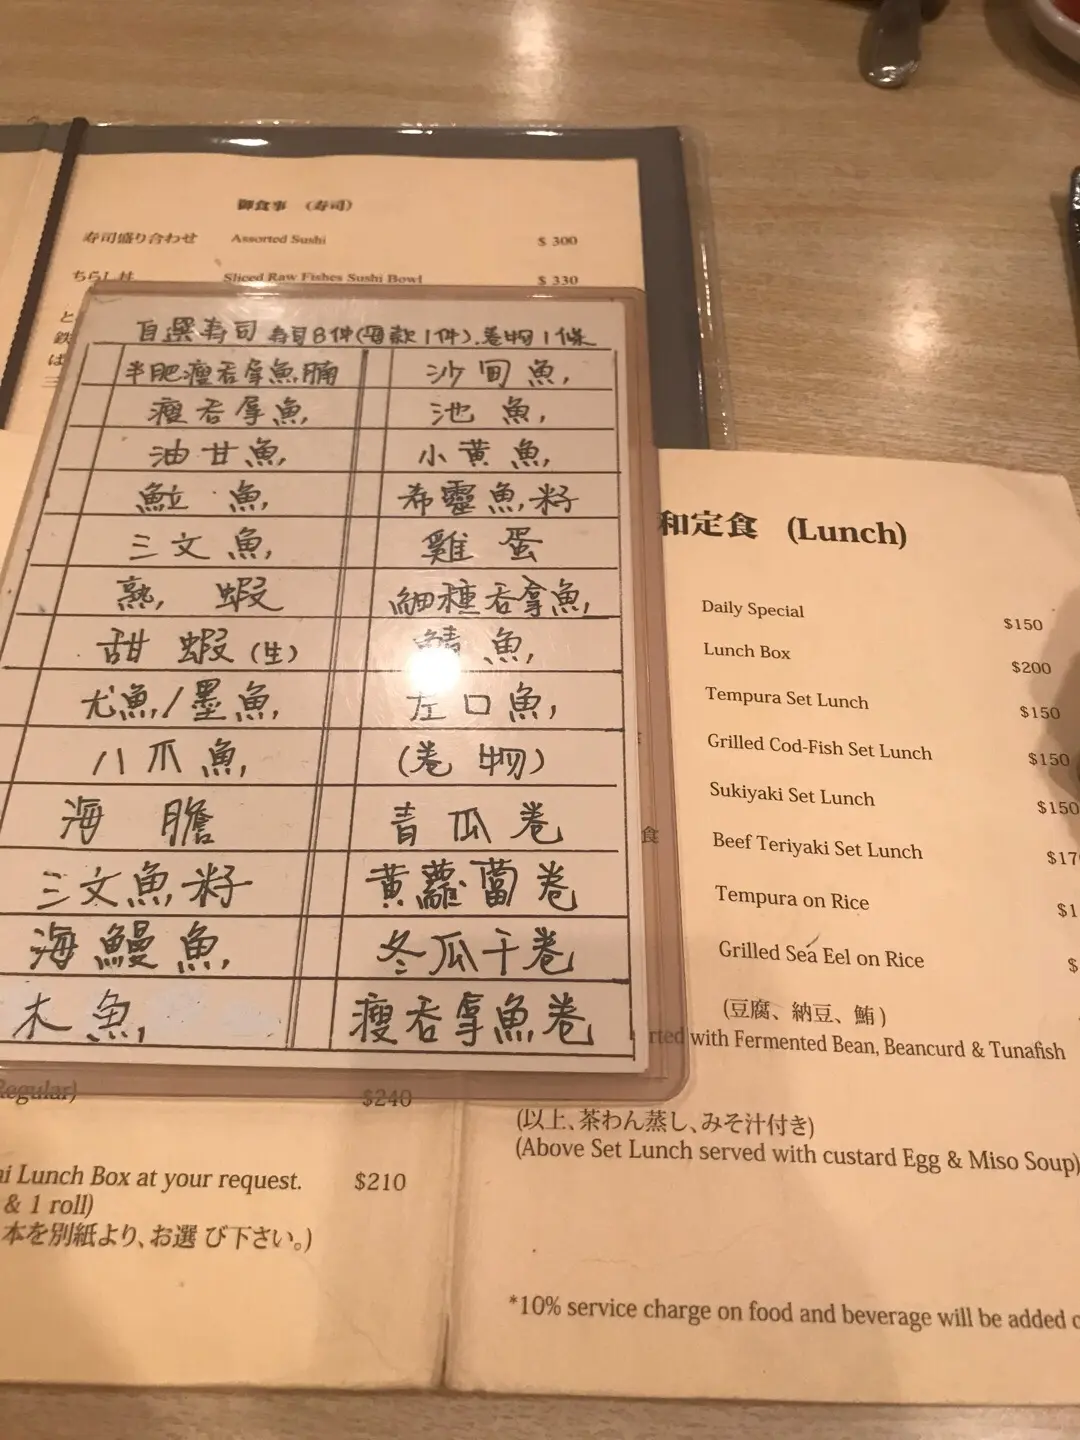 御食事 (寿司)
寿司盛り合わせ Assorted Sushi $ 300
ちらし丼 Sliced Raw Fishes Sushi Bowl $ 330
と
鉄
は
三
自選寿司 寿司8件(每款1件).卷物1條
半肥瘦吞拿魚腩 沙甸魚
瘦吞拿魚 池魚
油甘魚 小黄魚
魚立 魚 希靈魚籽
三文魚 雞蛋
熟蝦 細種吞拿魚
甜蝦(生) 鯖魚
尤魚/墨魚 左口魚
八爪魚 (卷物)
海膽 青瓜卷
三文魚籽 黄蘿蔔卷
海鰻魚 冬瓜干卷
木魚 瘦吞拿魚卷
食
Regular) $240
Lunch Box at your request. $210
& 1 roll)
本を別紙より、お選び下さい。)
和定食 (Lunch)
Daily Special $150
Lunch Box $200
Tempura Set Lunch $150
Grilled Cod-Fish Set Lunch $150
Sukiyaki Set Lunch $150
Beef Teriyaki Set Lunch $17
Tempura on Rice $1
Grilled Sea Eel on Rice $
(豆腐、納豆、鮪)
rted with Fermented Bean, Beancurd & Tunafish
(以上、茶わん蒸し、みそ汁付き)
(Above Set Lunch served with custard Egg & Miso Soup)
*10% service charge on food and beverage will be added